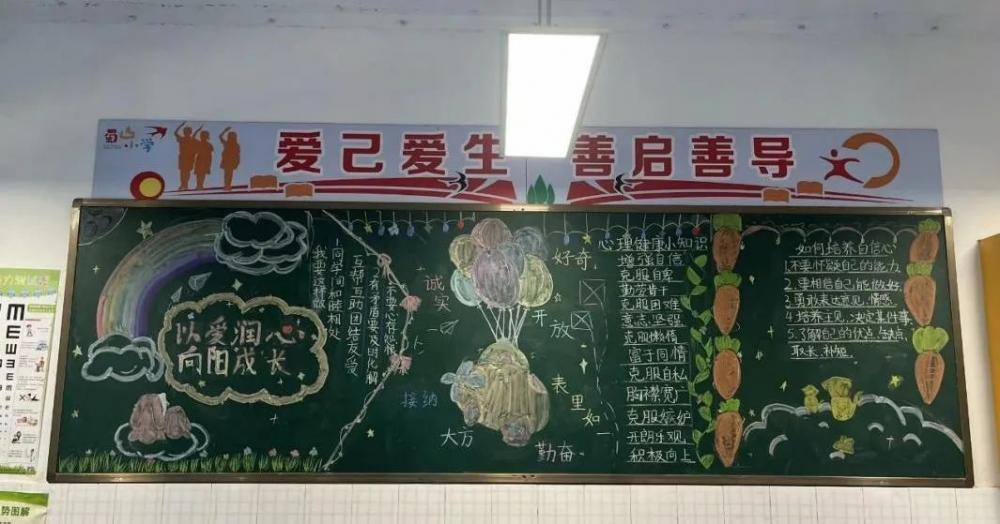 蜀山
小学
爱己爱生 善启善导
以爱润心
向阳成长
我要这样做
1.同学间和睦相处
互帮互助团结友爱
2.有矛盾要及时化解
诚实
接纳
大方
勤奋
好奇
开放
表里如一
心理健康小知识
增强自信
克服自卑
勤劳肯干
克服困难
意志坚强
克服懒惰
富于同情
克服自私
胸襟宽广
克服嫉妒
开朗乐观
积极向上
如何培养自信心
1.不要怀疑自己的能力
2.要相信自己能做好
3.勇敢表达意见、情感
4.培养主见、决定某件事
5.了解自己的优点、缺点,
取长补短
势图解